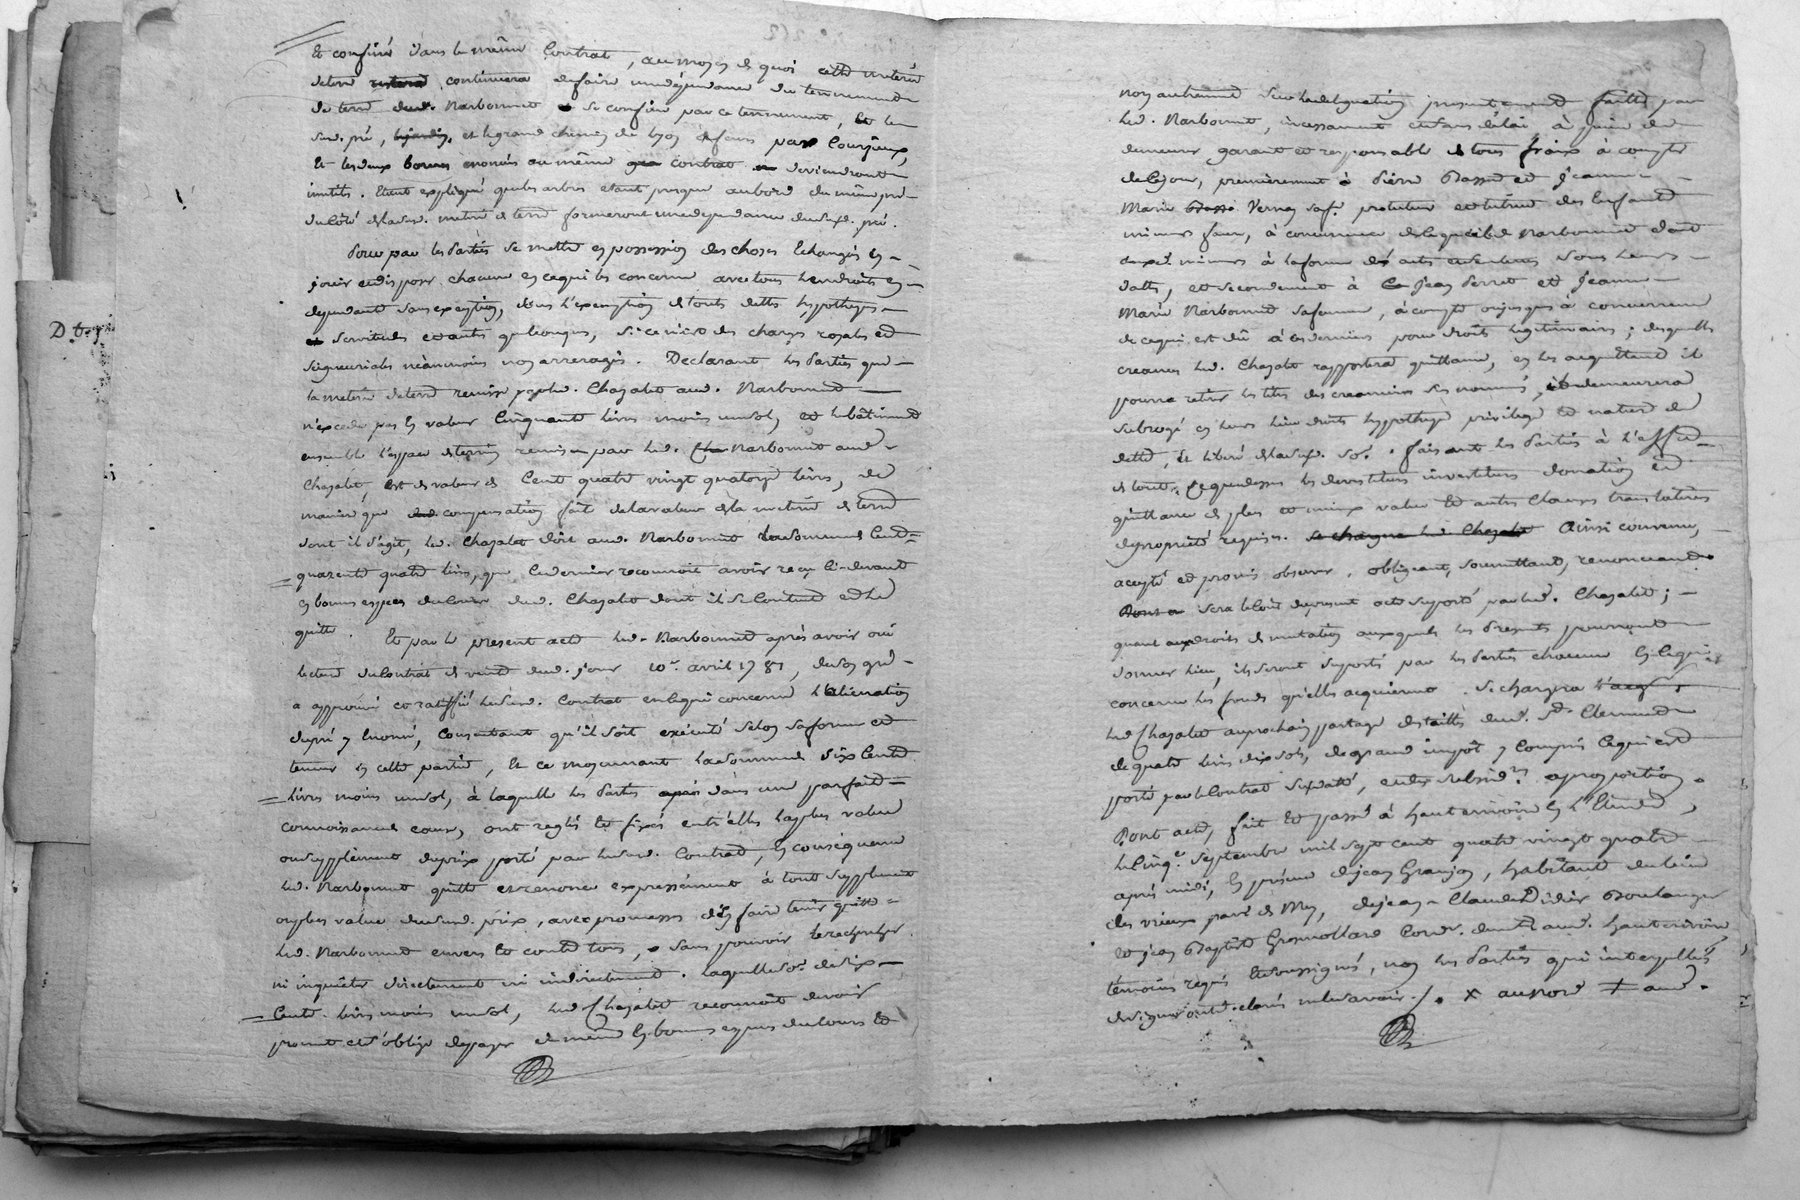 Et confiné dans le même Contrat, au moyen de quoi cette meterée
de terre continuera de faire une dépendance du tennement
de terre dud. Narbonnet se confine par ce tennement, Et le
sud. pré, et le grand chemin de Lyon à feurs par Courzieux,
Et les deux bornes enoncés au même contrat deviendront
inutils. Etant expliqué que les arbres etant presque au bord du même pré
du côté de lad. metrée de terre formeront une dependance dud. pré.
Pour par les Parties se mettre en possession des choses Echangés en
jouir et disposer chacune en ce qui les concerne avec tous leurs droits en
dependant sans exception, sous l'exemption de touts dettes hypotheques
et servitudes et autres quelconques, si ce n'est des charges royales et
seigneurials néanmoins non arreragés. Declarant les Parties que
la metrée de terre remise par led. Chazalet aud. Narbonnet
n'excede pas en valeur Cinquante livres moins un sol, et le bâtiment
ensemble l'espace de terrein remis par led. Narbonnet aud.
Chazalet, est de valeur de Cent quatre vingt quatorze livres, de
manière que compensation fait de la valeur de la metrée de terre
dont il s'agit, led. Chazalet doit aud. Narbonnet la somme de Cent
quarente quatre livres, que Ce dernier reconnoit avoir reçu Ci-devant
en bonnes especes du Cours dud. Chazalet dont il se Contente et le
quitte. Et par le present acte led. Narbonnet après avoir oui
lecture du Contrat de vente dud. jour 10e avril 1781, de son gré
a approuvé et ratiffié led. Contrat en Ce qui concerne l'alienation
du pré y Enoncé, Consentant qu'il soit exécuté selon sa forme et
teneur en cette partie, Et ce moyennant la somme de Six Cents
livres moins un sol, à laquelle les Parties dans une parfaite
connoissance de cause, ont reglés Et fixés entr'elles la plus value
ou supplément du prix porté par led. Contrat, En conséquence
led. Narbonnet quitte et renonce expressément à tout supplement
ou plus value dud. prix, avec promesses d'En faire tenir quitte
led. Narbonnet envers Et contre tous, sans pouvoir le rechercher
ni inquiéter directement ni indirectement. Laquelle so. de Six
Cents livres moins un sol, led. Chazalet reconnoit devoir
promet et s'oblige de payer de même En bonnes especes du Cours Et
non autrement sur la délégation présentement faite par
led. Narbonnet, incessament et sans délai à peine de
demeurer garant et responsable de tous fraix à compter
de Ce jour, premièrement à Pierre Basset et Jeanne
Marie Vernay sa f. protuteur et tutrice des Enfants
mineurs, à concurrence de Ce que led. Narbonnet doit
auxd. mineurs à la forme des actes sous leurs
dates, et secondement à Jean Perret et Jeanne
Marie Narbonnet sa femme, à compte ou jusques à concurrence
de ce qui est dû à ces derniers pour droits légitimaires; desquelles
creances led. Chazalet rapportera quittance, en les acquittant il
pourra retirer les titres des creanciers sus nommés, et demeurera
subrogé en leurs lieu droits hypotheque privilege Et nature de
dette, Et liberé de lad. so. faisant les Parties à l'effet
de tout Ce que dessus les devestitures investitures donation Et
quittance de plus et mieux value Et autres Clauses translatives
de proprieté requises. Ainsi convenu,
accepté et promis observer, obligeant, soumettant, renonceant.
sera le Coût du present acte suporté par led. Chazalet;
quant aux droits de mutation auxquels les Presents pourront
donner lieu, ils seront suportés par les Parties chacune En Ce qui
concerne les fonds qu'elles acquierrent. se chargera
led. Chazalet au prochain partage des tailles dud. St. Clement
de quatre livres dix sols, de grand impôt y Compris Ce qui est
porté par le Contrat susdatté, et des subsid.res a proportion.
Dont acte, fait Et passé à hauterivoire En l'Etude,
le Cinq.e septembre mil sept cent quatre vingt quatre
après midi, En présence de jean Granjon, habitant du lieu
des vieux paré de Mey, de jean-Claude Didier Boulanger
Et jean Baptiste Grosmollard Cord. dem.t aud. hauterivoire
témoins requis Et soussignés, non les Parties qui interpellés
de signer ont declarés ne le savoir./. X au nord ≠ aud.
D. t. 1